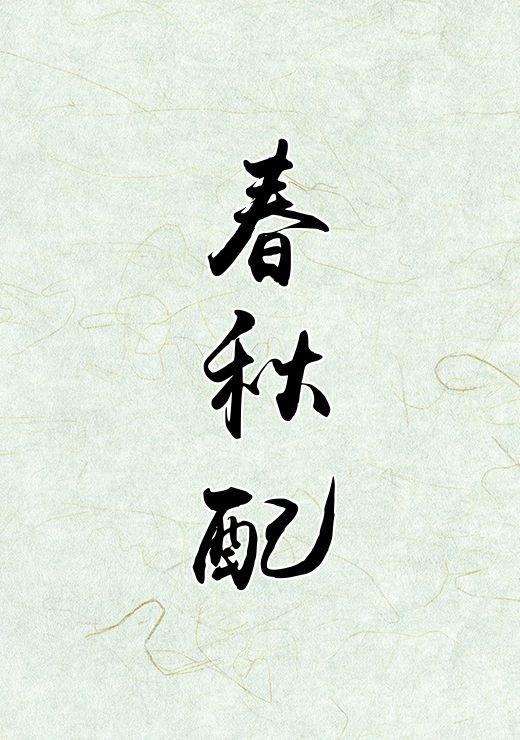 春秋配